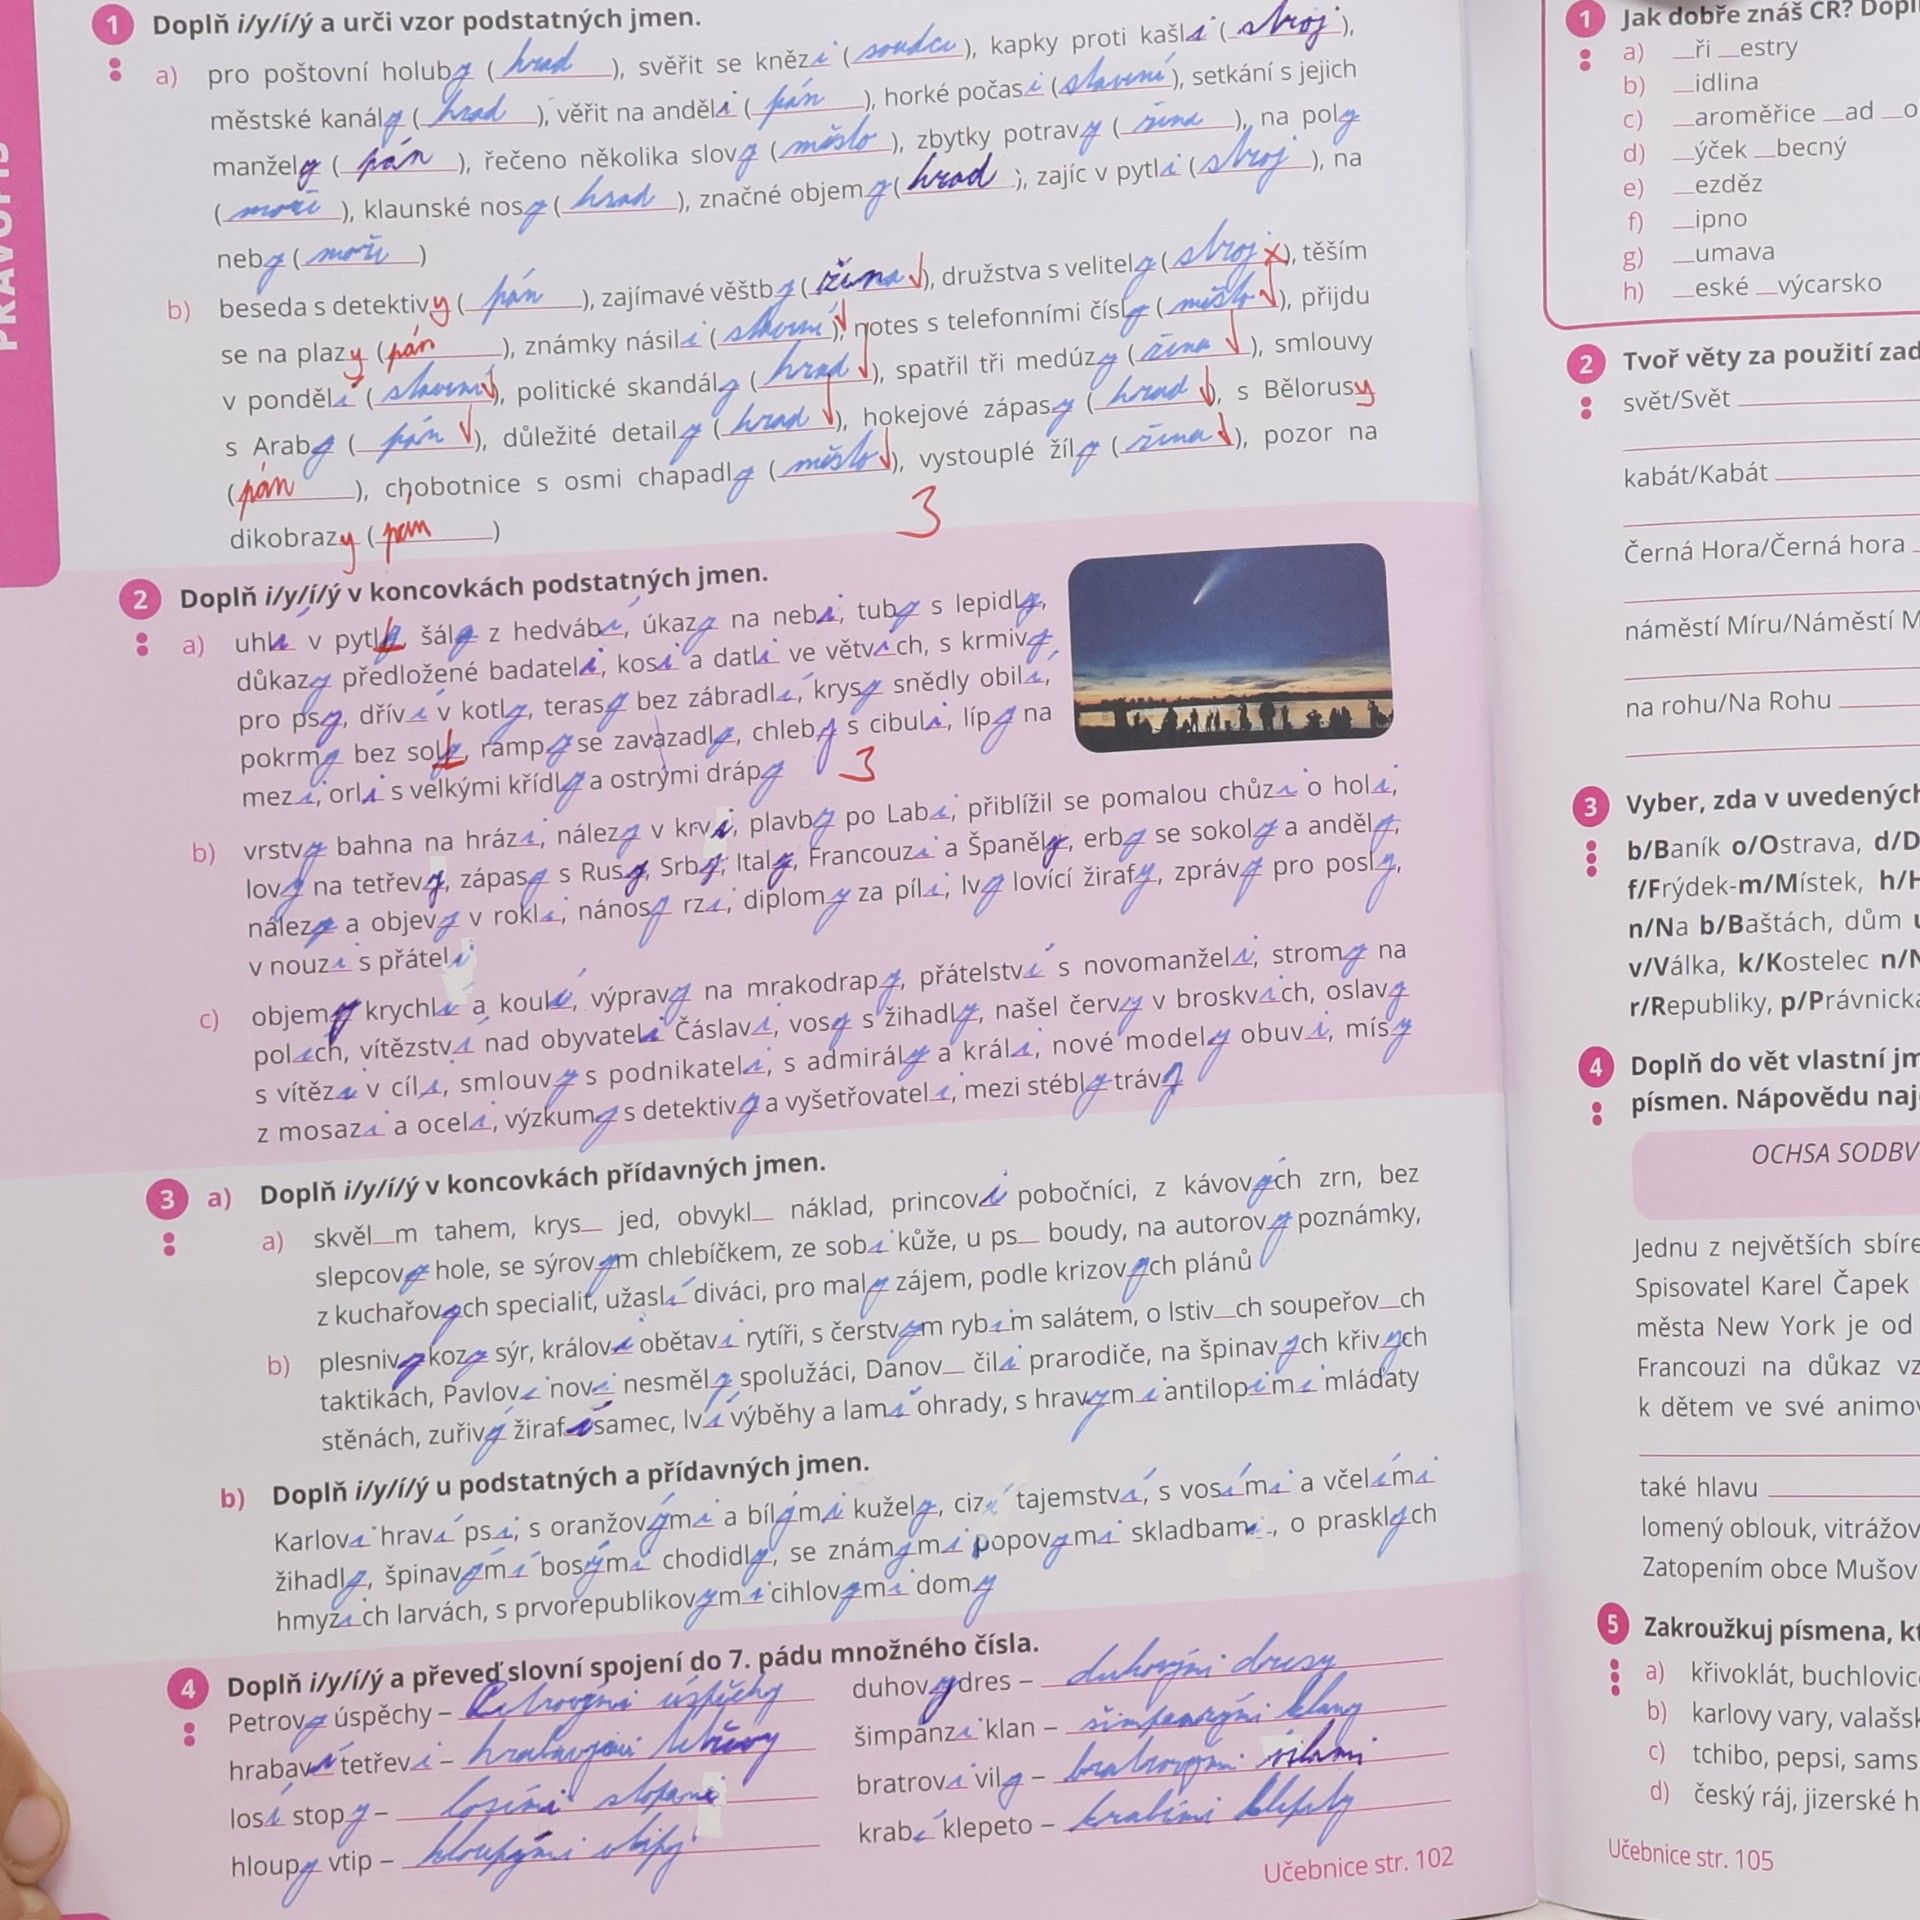 PRAVOPIS
1 Doplň i/y/í/ý a urči vzor podstatných jmen.
a) pro poštovní holuby (hrad), svěřit se knězi (soudce), kapky proti kašli (stroj),
městské kanály (hrad), věřit na anděli (pán), horké počasí (stavení), setkání s jejich
manžely (pán), řečeno několika slovy (město), zbytky potravy (žena), na poly
(moře), klaunské nosy (hrad), značné objemy (hrad), zajíc v pytli (stroj), na
neby (moře)
b) beseda s detektivy (pán), zajímavé věštby (žena), družstva s velitely (stroj x), těším
se na plazy (pán), známky násilí (stavení), notes s telefonními čísly (město), přijdu
v pondělí (stavení), politické skandály (hrad), spatřil tři medúzy (žena), smlouvy
s Araby (pán), důležité detaily (hrad), hokejové zápasy (hrad), s Bělorusy
(pán), chobotnice s osmi chapadly (město), vystouplé žíly (žena), pozor na
dikobrazy (pán)
3
2 Doplň i/y/í/ý v koncovkách podstatných jmen.
a) uhlí v pytly, šály z hedvábí, úkazy na nebi, tuby s lepidly,
důkazy předložené badateli, kosi a datli ve větvích, s krmivy
pro psy, dříví v kotly, terasy bez zábradlí, krysy snědly obilí,
pokrmy bez soly, rampy se zavazadly, chleby s cibuli, lípy na
mezi, orli s velkými křídly a ostrými drápy
3
b) vrstvy bahna na hrázi, nálezy v krvi, plavby po Labi, přiblížil se pomalou chůzi o holi,
lovy na tetřevy, zápasy s Rusy, Srby, Italy, Francouzi a Španěly, erby se sokoly a anděly,
nálezy a objevy v rokli, nánosy rzi, diplomy za píli, lvy lovící žirafy, zprávy pro posly,
v nouzi s přáteli
c) objemy krychli a koulí, výpravy na mrakodrapy, přátelství s novomanželi, stromy na
polích, vítězství nad obyvateli Čáslavi, vosy s žihadly, našel červy v broskvích, oslavy
s vítězi v cíli, smlouvy s podnikateli, s admirály a králi, nové modely obuvi, mísy
z mosazi a oceli, výzkumy s detektivy a vyšetřovateli, mezi stébly trávy
3 a) Doplň i/y/í/ý v koncovkách přídavných jmen.
a) skvěl_m tahem, krys_ jed, obvykl_ náklad, princovi pobočníci, z kávových zrn, bez
slepcovy hole, se sýrovym chlebíčkem, ze sobi kůže, u ps_ boudy, na autorovy poznámky,
z kuchařovych specialit, užaslí diváci, pro maly zájem, podle krizovych plánů
b) plesnivy kozy sýr, královi obětavi rytíři, s čerstvym rybim salátem, o lstiv_ch soupeřov_ch
taktikách, Pavlovi novi nesměly spolužáci, Danov_ čili prarodiče, na špinavych křivych
stěnách, zuřivý žirafí samec, lví výběhy a lamí ohrady, s hravymi antilopimi mláďaty
b) Doplň i/y/í/ý u podstatných a přídavných jmen.
Karlovi hraví psi, s oranžovými a bílými kužely, cizí tajemství, s vosími a včelími
žihadly, špinavými bosými chodidly, se známymi popovymi skladbami, o prasklych
hmyzich larvách, s prvorepublikovymi cihlovymi domy
4 Doplň i/y/í/ý a převeď slovní spojení do 7. pádu množného čísla.
Petrovy úspěchy – Petrovými úspěchy
duhovy dres – duhovými dresy
hrabaví tetřevi – hrabavými tetřevy
šimpanzi klan – šimpanzými klany
losí stopy – losími stopami
bratrovi vily – bratrovymi vilami
hloupy vtip – hloupými vtipy
krabí klepeto – krabími klepety
Učebnice str. 102
1 Jak dobře znáš ČR? Dopl
a) _ři _estry
b) _idlina
c) _aroměřice _ad _o
d) _ýček _becný
e) _ezděz
f) _ipno
g) _umava
h) _eské _výcarsko
2 Tvoř věty za použití zad
svět/Svět
kabát/Kabát
Černá Hora/Černá hora
náměstí Míru/Náměstí M
na rohu/Na Rohu
3 Vyber, zda v uvedených
b/Baník o/Ostrava, d/D
f/Frýdek-m/Místek, h/H
n/Na b/Baštách, dům u
v/Válka, k/Kostelec n/N
r/Republiky, p/Právnická
4 Doplň do vět vlastní jm
písmen. Nápovědu naj
OCHSA SODBV
Jednu z největších sbíre
Spisovatel Karel Čapek
města New York je od
Francouzi na důkaz vz
k dětem ve své animov
také hlavu
lomený oblouk, vitrážov
Zatopením obce Mušov
5 Zakroužkuj písmena, kt
a) křivoklát, buchlovice
b) karlovy vary, valašsk
c) tchibo, pepsi, sams
d) český ráj, jizerské h
Učebnice str. 105